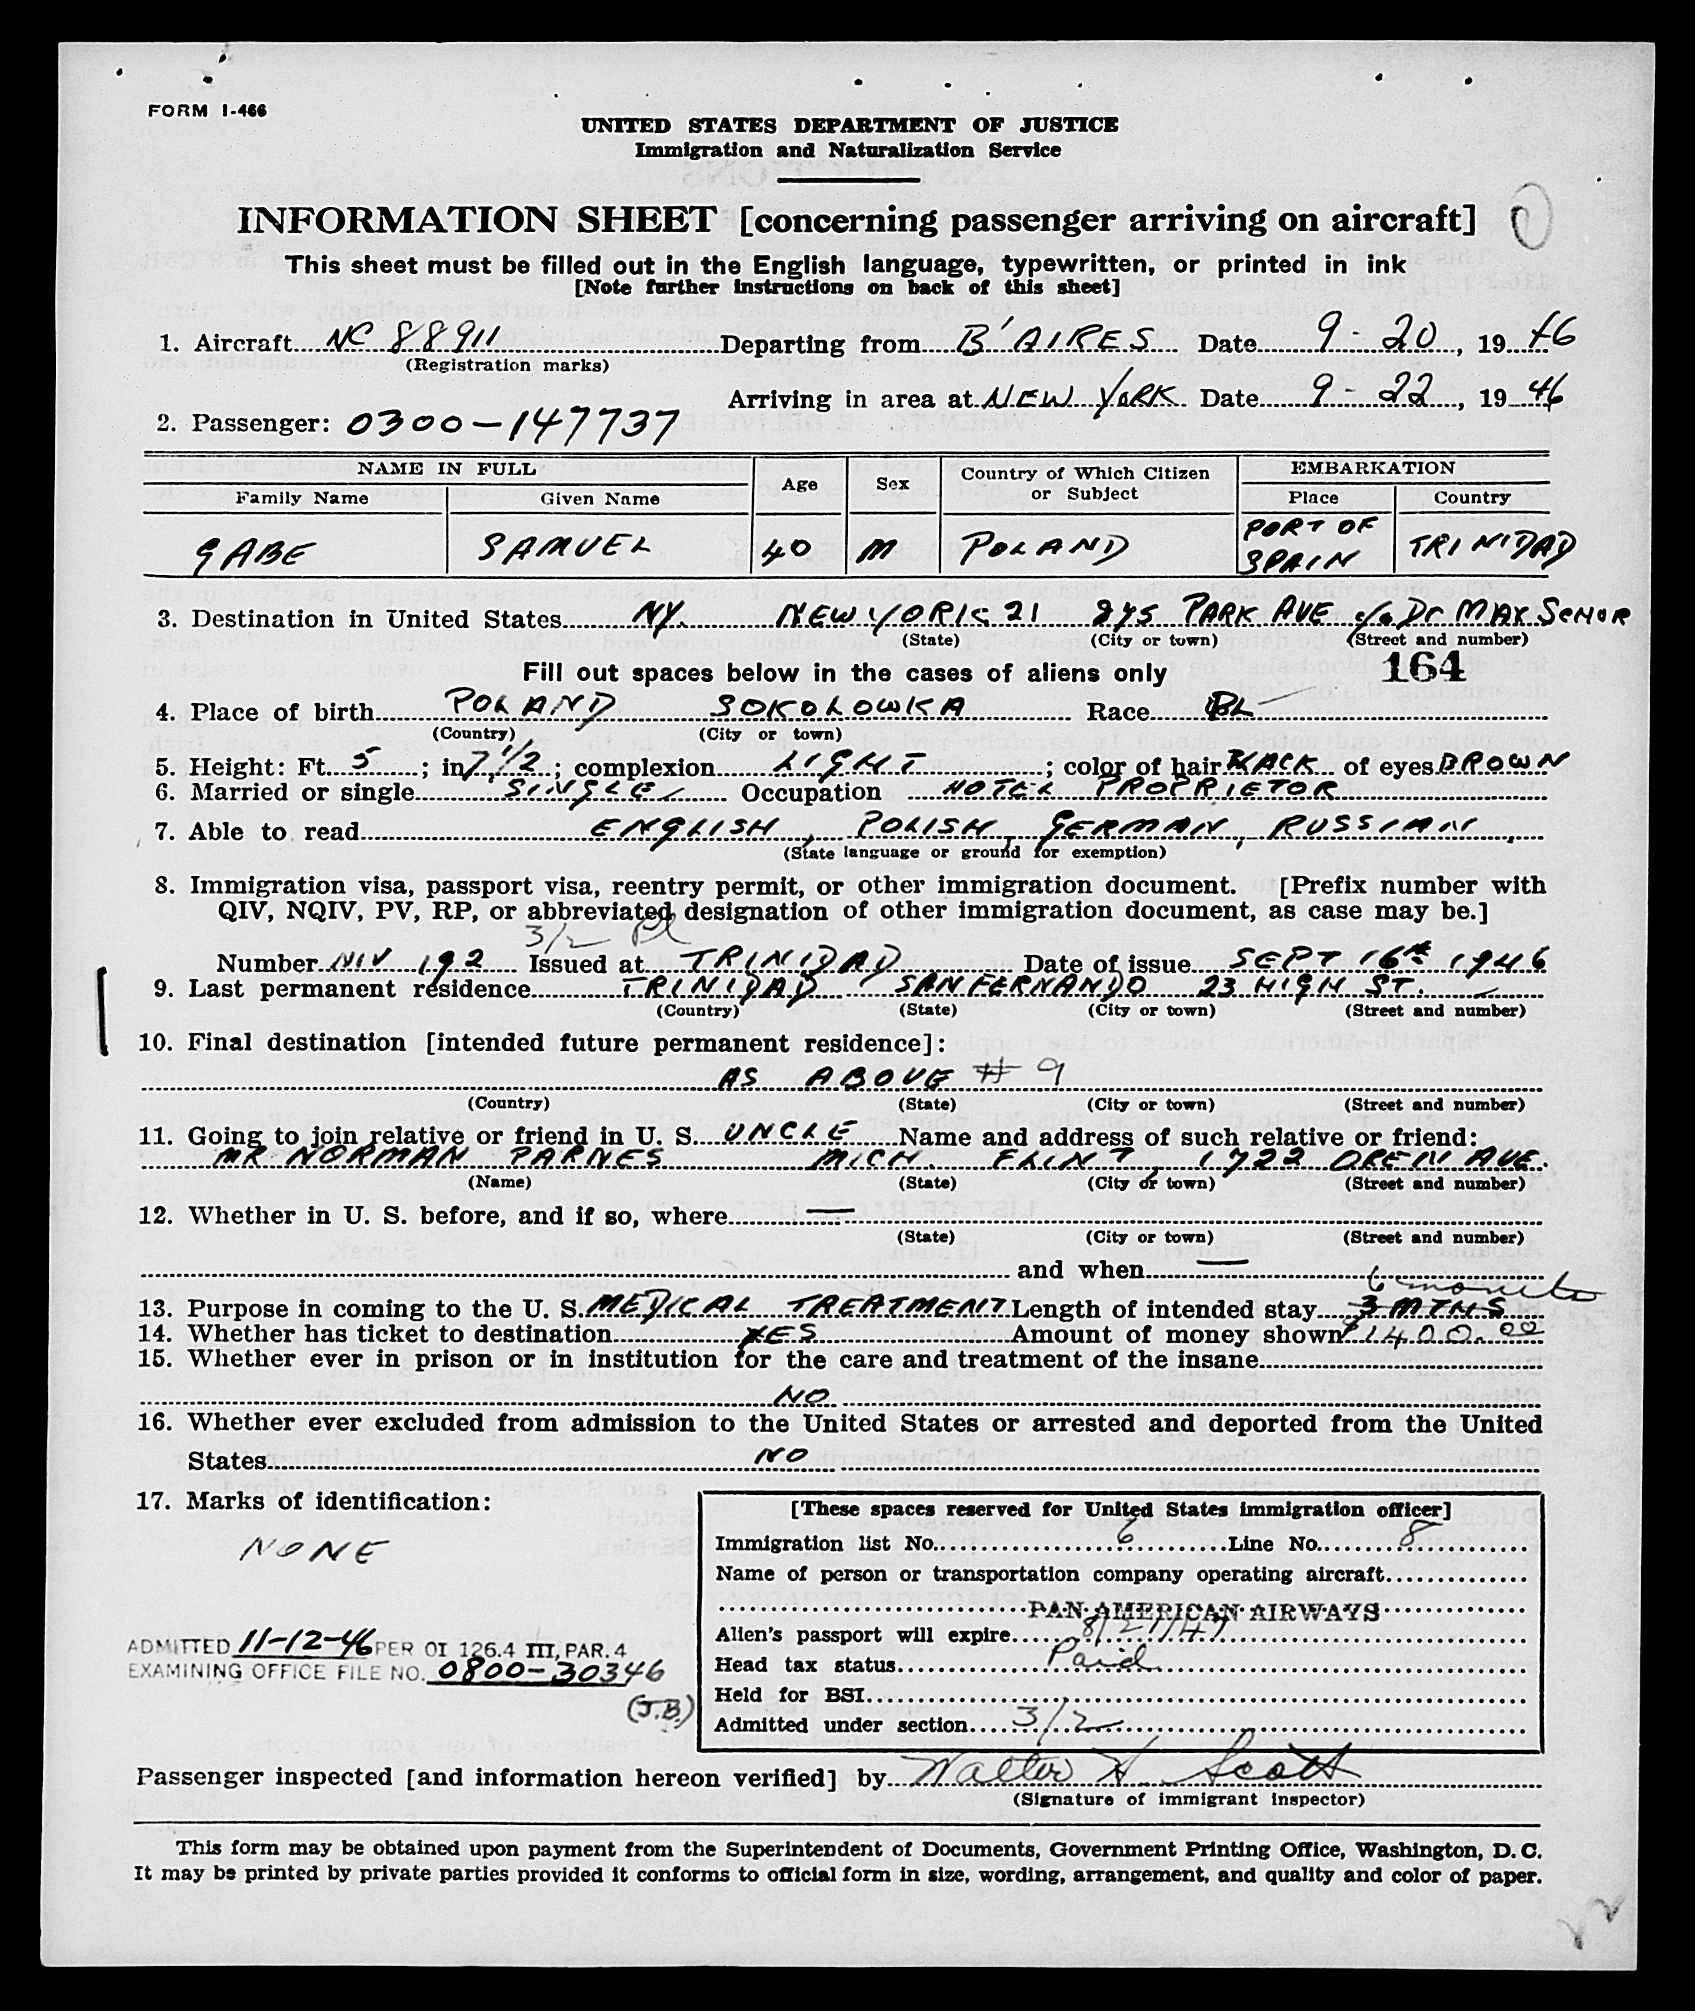 FORM I-466
UNITED STATES DEPARTMENT OF JUSTICE
Immigration and Naturalization Service
INFORMATION SHEET [concerning passenger arriving on aircraft]
This sheet must be filled out in the English language, typewritten, or printed in ink
[Note further instructions on back of this sheet]
1. Aircraft NC 88911 Departing from B'AIRES Date 9-20, 1946
(Registration marks)
Arriving in area at NEW YORK Date 9-22, 1946
2. Passenger: 0300-147737
NAME IN FULL Age Sex Country of Which Citizen or Subject EMBARKATION
Family Name Given Name Place Country
GABE SAMUEL 40 M POLAND PORT OF SPAIN TRINIDAD
3. Destination in United States NY. NEW YORK 21 PARK AVE c/o Dr MAX SENOR
(State) (City or town) (Street and number)
Fill out spaces below in the cases of aliens only 164
4. Place of birth POLAND SOKOLOWKA Race PL
(Country) (City or town)
5. Height: Ft. 5; in 7 1/2; complexion LIGHT; color of hair BLACK of eyes BROWN
6. Married or single SINGLE Occupation HOTEL PROPRIETOR
7. Able to read ENGLISH, POLISH, GERMAN, RUSSIAN,
(State language or ground for exemption)
8. Immigration visa, passport visa, reentry permit, or other immigration document. [Prefix number with
QIV, NQIV, PV, RP, or abbreviated designation of other immigration document, as case may be.]
3/2 Pl
Number NIV 192 Issued at TRINIDAD Date of issue SEPT 16th 1946
9. Last permanent residence TRINIDAD SAN FERNANDO 23 HIGH ST.
(Country) (State) (City or town) (Street and number)
10. Final destination [intended future permanent residence]:
AS ABOVE # 9
(Country) (State) (City or town) (Street and number)
11. Going to join relative or friend in U. S. UNCLE Name and address of such relative or friend:
MR NORMAN PARNES MICH. FLINT, 1722 OREN AVE.
(Name) (State) (City or town) (Street and number)
12. Whether in U. S. before, and if so, where —
(State) (City or town) (Street and number)
and when —
6 months
13. Purpose in coming to the U. S. MEDICAL TREATMENT Length of intended stay 3 MTHS
14. Whether has ticket to destination YES Amount of money shown $1400.00
15. Whether ever in prison or in institution for the care and treatment of the insane
NO
16. Whether ever excluded from admission to the United States or arrested and deported from the United
States NO
17. Marks of identification:
NONE
[These spaces reserved for United States immigration officer]
Immigration list No. 6 Line No. 8
Name of person or transportation company operating aircraft
PAN AMERICAN AIRWAYS
Alien's passport will expire 8/21/47
Head tax status Paid
Held for BSI
Admitted under section 3/2
ADMITTED 11-12-46 PER OI 126.4 III, PAR. 4
EXAMINING OFFICE FILE NO. 0800-30346
(J.B.)
Passenger inspected [and information hereon verified] by Walter H Scott
(Signature of immigrant inspector)
This form may be obtained upon payment from the Superintendent of Documents, Government Printing Office, Washington, D. C.
It may be printed by private parties provided it conforms to official form in size, wording, arrangement, and quality and color of paper.